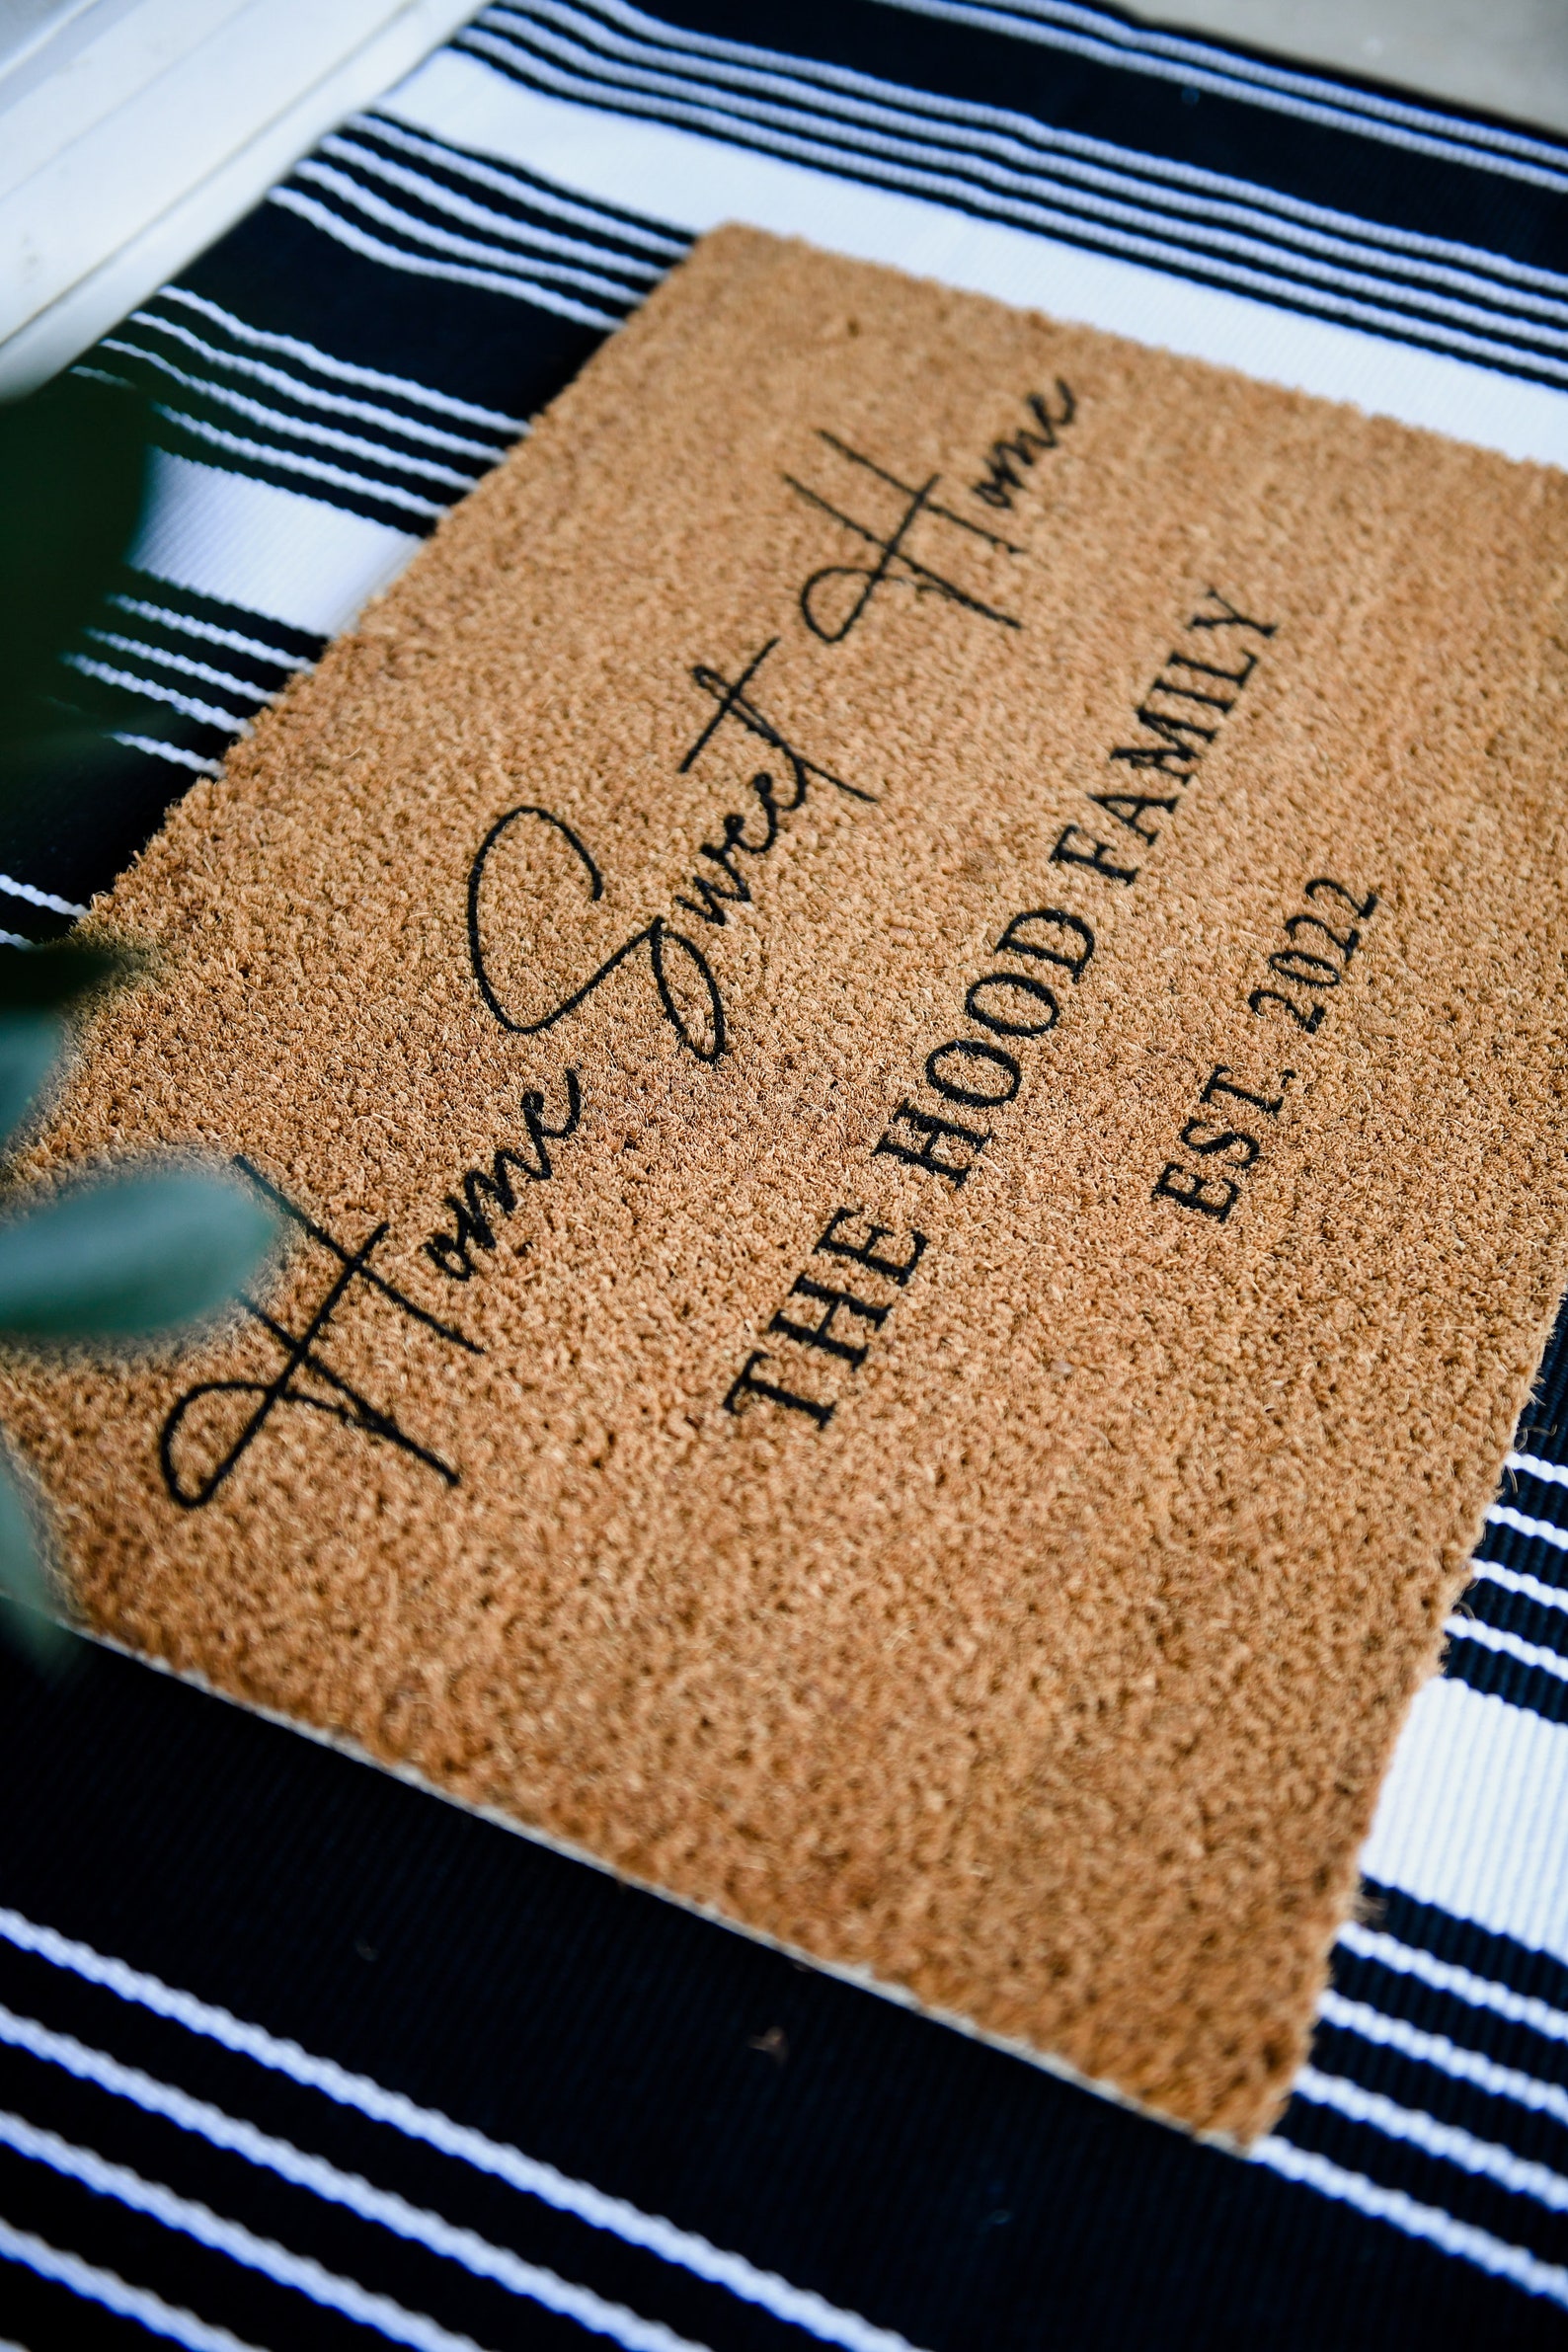 Home Sweet Home
THE HOOD FAMILY
EST. 2022